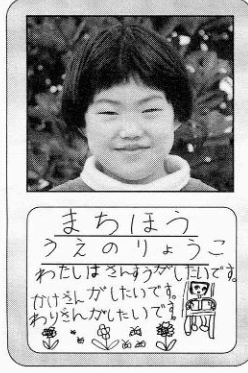 まちほう
うえのりょうこ
わたしはさんすうがしたいです。
かけざんがしたいです。
わりざんがしたいです。